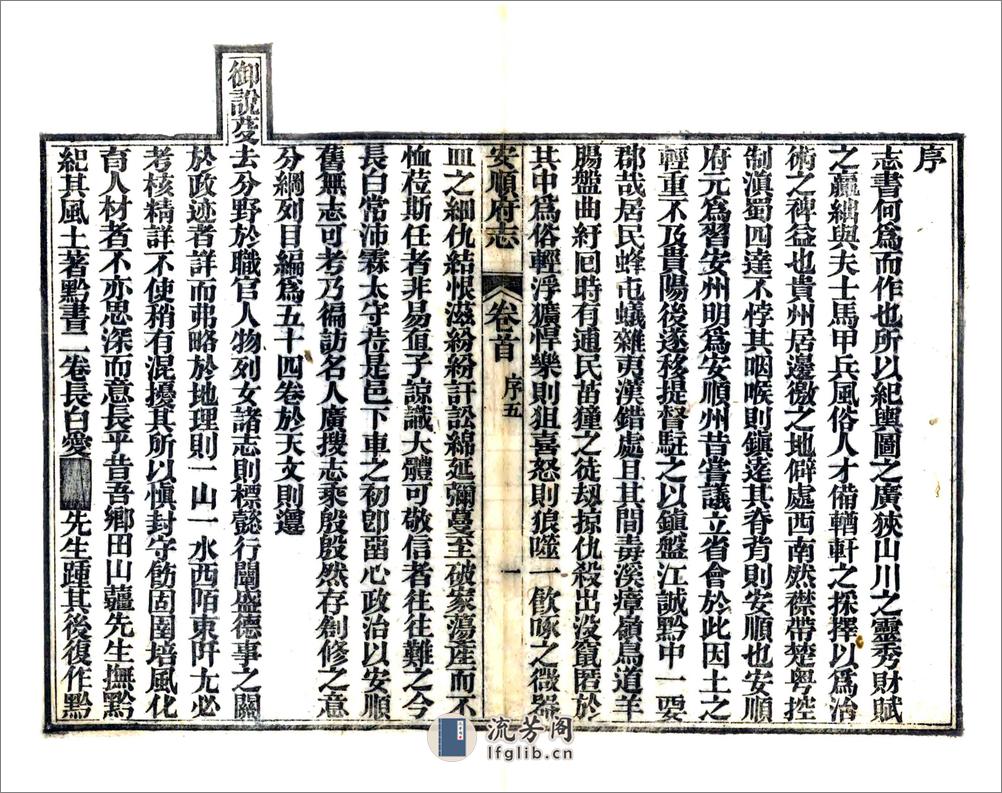 序
志書何爲而作也所以紀輿圖之廣狹山川之靈秀財賦
之贏絀與夫士馬甲兵風俗人才備輶軒之採擇以爲治
術之裨益也貴州居邊徼之地僻處西南然襟帶楚粤控
制滇蜀四達不悖其咽喉則鎮遠其脊背則安順也安順
府元爲習安州明爲安順州昔嘗議立省會於此因土之
輕重不及貴陽後遂移提督駐之以鎮盤江誠黔中一要
郡哉居民蜂屯蟻雜夷漢錯處且其間毒溪瘴嶺鳥道羊
腸盤曲紆回時有逋民苗獞之徒刼掠仇殺出没竄匿於
其中爲俗輕浮獷悍樂則狙喜怒則狼噬一飲啄之微器
安順府志
卷首
序五
一
皿之細仇結恨滋紛紛訐訟綿延彌蔓至破家蕩產而不
恤莅斯任者非易值子諒識大體可敬信者往往難之今
長白常沛霖太守莅是邑下車之初卽留心政治以安順
舊無志可考乃徧訪名人廣搜志乘殷殷然存創修之意
分綱列目編爲五十四卷於天文則遵
御說芟
去分野於職官人物列女諸志則標懿行闡盛德事之關
於政迹者詳而弗略於地理則一山一水西陌東阡尤必
考核精詳不使稍有混擾其所以愼封守飭固圉培風化
育人材者不亦思深而意長乎昔吾鄉田山薑先生撫黔
紀其風土著黔書二卷長白愛
先生踵其後復作黔
流芳阁
lfglib.cn